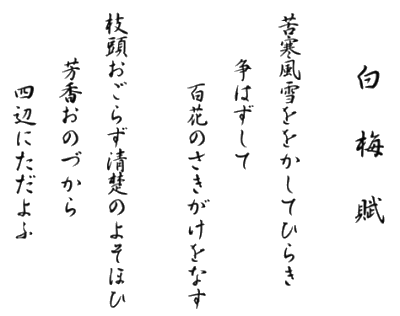 白梅賦
苦寒風雪ををかしてひらき
争はずして
百花のさきがけをなす
枝頭おごらず清楚のよそほひ
芳香おのづから
四辺にただよふ